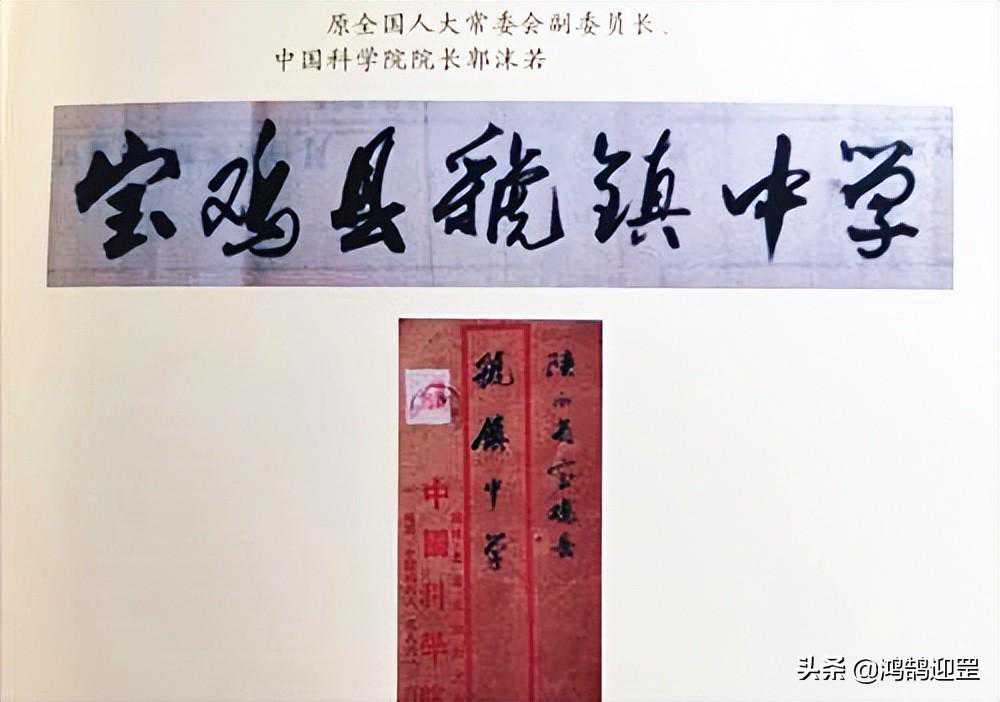 原全国人大常委会副委员长、
中国科学院院长郭沫若
宝鸡县虢镇中学
陕西省宝鸡县
虢镇中学
中国科学院
头条 @鸿鹄迎罡